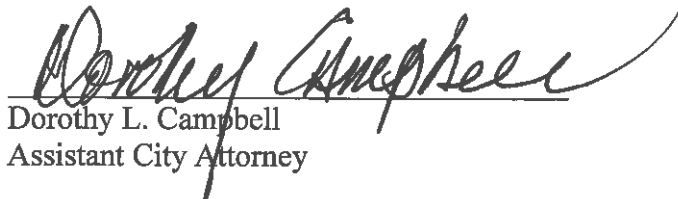 Dorothy Campbell
Dorothy L. Campbell
Assistant City Attorney